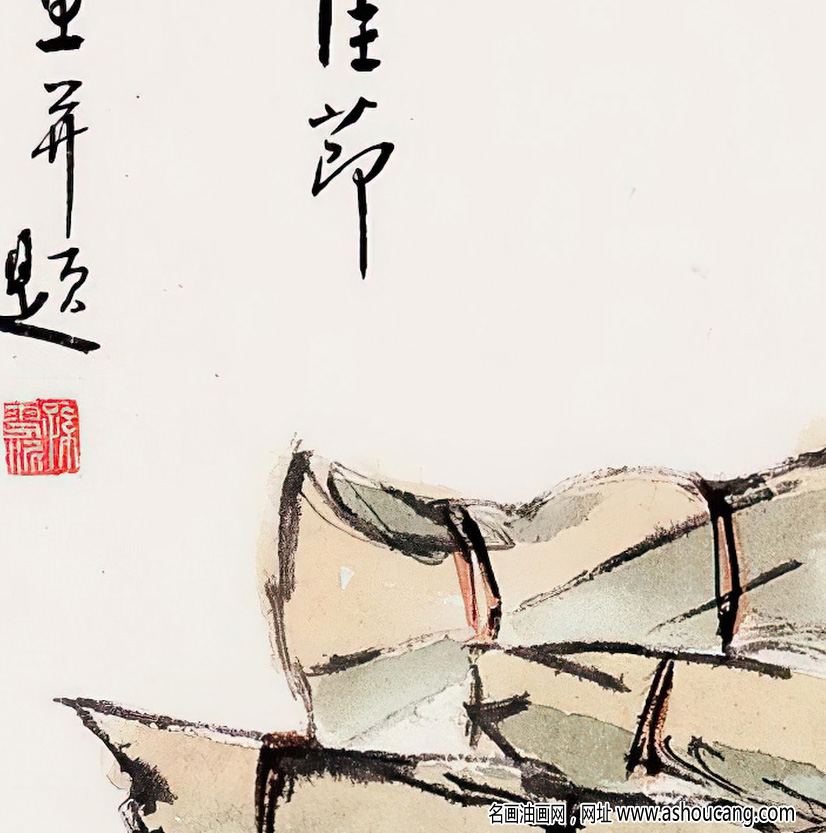 佳節
并題
名画油画网，网址 www.ashoucang.com